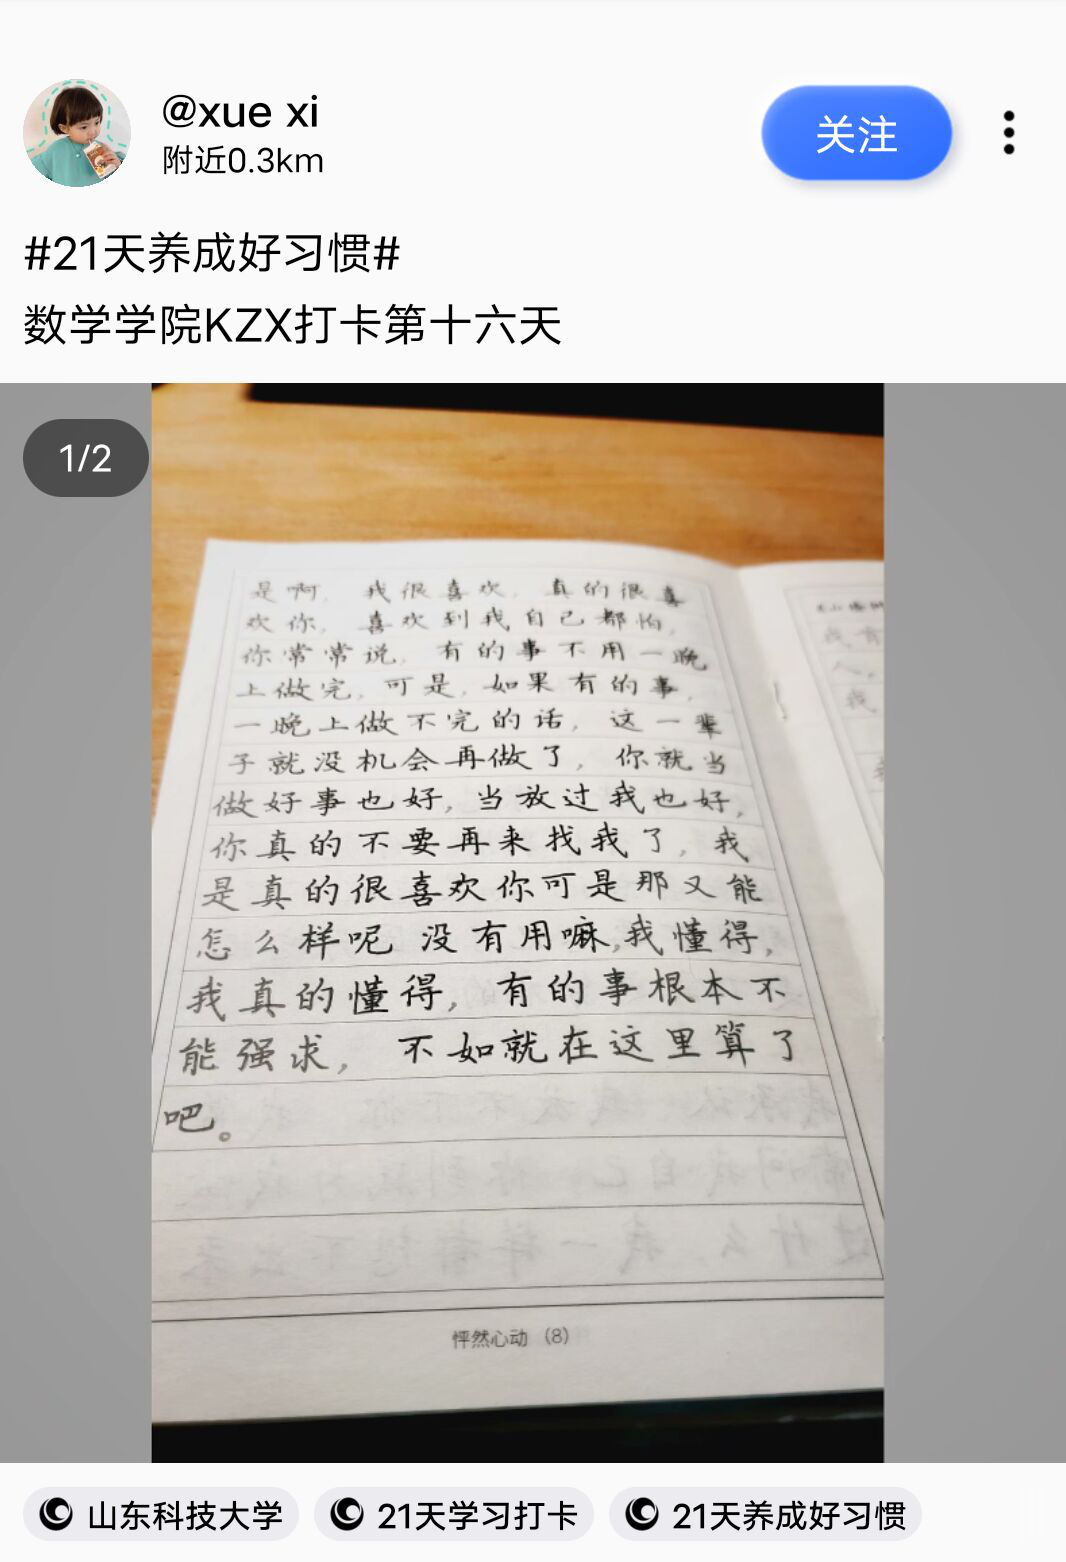 @xue xi
附近0.3km
关注
#21天养成好习惯#
数学学院KZX打卡第十六天
1/2
是啊，我很喜欢，真的很喜
欢你，喜欢到我自己都怕，
你常常说，有的事不用一晚
上做完，可是，如果有的事，
一晚上做不完的话，这一辈
子就没机会再做了，你就当
做好事也好，当放过我也好，
你真的不要再来找我了，我
是真的很喜欢你可是那又能
怎么样呢 没有用嘛，我懂得，
我真的懂得，有的事根本不
能强求，不如就在这里算了
吧。
怦然心动 （8）
山东科技大学
21天学习打卡
21天养成好习惯